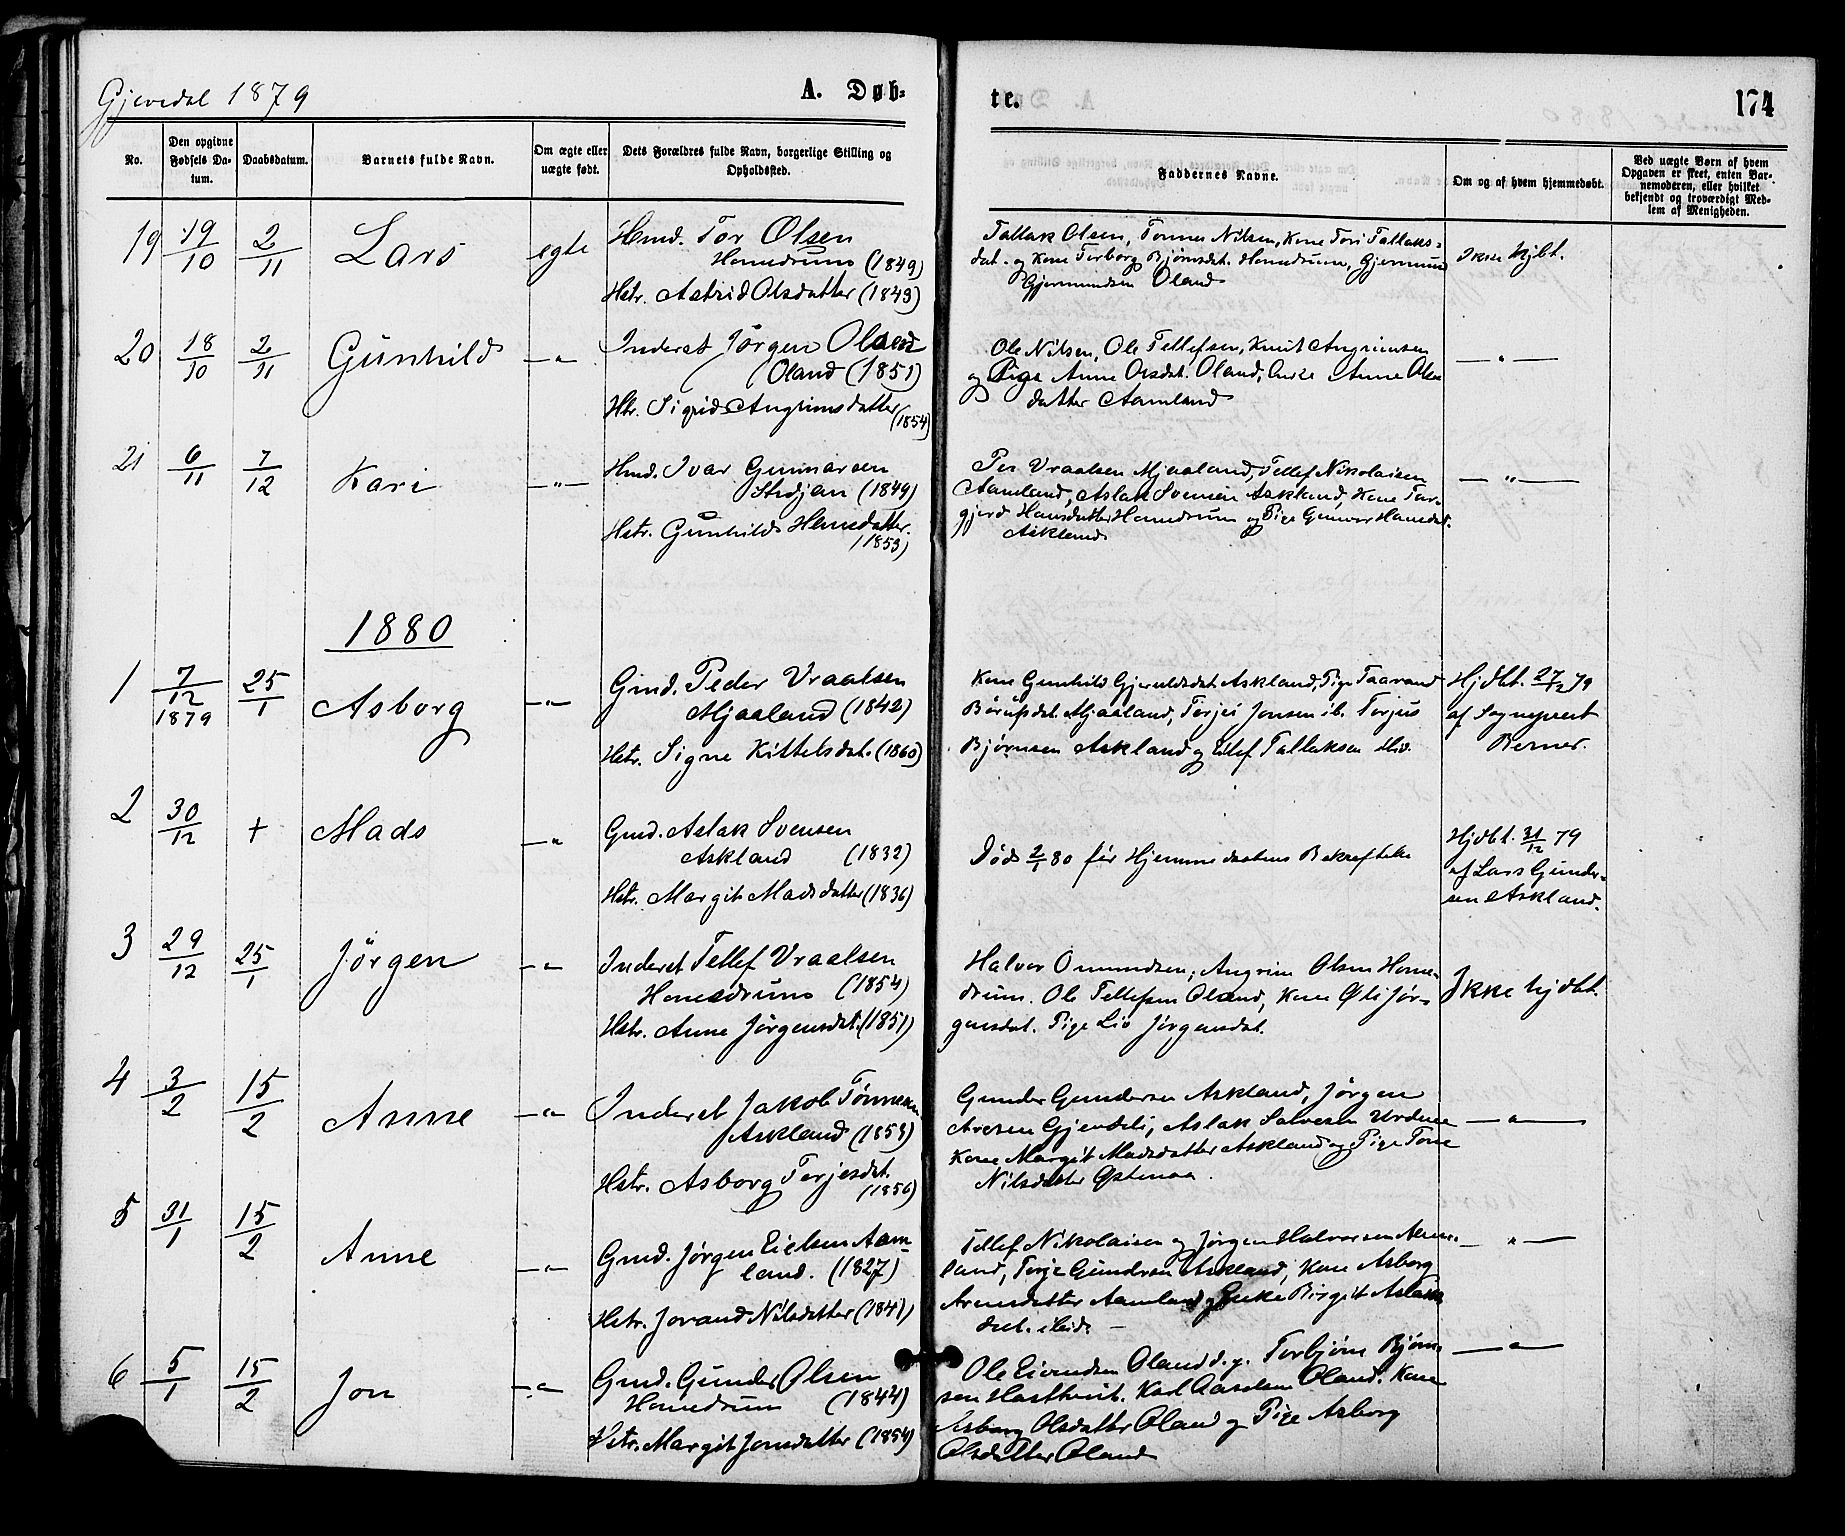 Gjevedal 1879
A. Døb-
te.
174
No.
Den opgivne Fødsels Datum.
Daabsdatum.
Barnets fulde Navn.
Om ægte eller uægte født.
Dets Forældres fulde Navn, borgerlige Stilling og Opholdssted.
Faddernes Navne.
Om og af hvem hjemmedøbt.
Ved uægte Børn af hvem Opgaven er skeet, enten Barnemoderen, eller hvilket bekjendt og troværdigt Medlem af Menigheden.
19 19/10 2/11 Lars egte
Hmd. Tor Olsen
Homdrum (1849)
Hstr. Astrid Olsdatter (1849)
Tallak Olsen, Tønnes Nilsen, Kone Tori Tallaks-
dat. og Kone Torborg Bjørnsdt. Homdrum, Gjermund
Gjermundsen Øland
Ikke hjbt.
20 18/10 2/11 Gunhild — " —
Inderst Jörgen Olsen
Öland (1851)
Hstr. Sigrid Angrimsdatter
(1854)
Ole Nilsen, Ole Tellefsen, Knut Angrimsen
og Pige Anne Olsdt. Öland, Enke Anne Ols-
datter Aamland
— " —
21 6/11 7/12 Kari — " —
Hmd. Ivar Gunnarsen
Stedjan (1849)
Hstr. Gunhild Hansdatter.
(1853)
Per Vraalsen Mjaaland, Tellef Nikolaisen
Aamland, Aslak Svensen Askland, Kone Tar-
gjerd Hansdatter Homdrum og Pige Gunvor Hansdt.
Askland
— " —
1880
1 7/12 1879 25/1 Asborg — " —
Gmd. Peder Vraalsen
Mjaaland (1842)
Hstr. Signe Kittelsdat. (1860)
Kone Gunhild Gjeruldsdt. Askland, Pige Taarand
Børufsdt. Mjaaland, Terjei Jonsen ib. Torjus
Bjørnsen Askland og Tellef Tallaksen
Hjdbt. 27/12 79
af Sogneprest
Berner.
2 30/12 + Mads — " —
Gmd. Aslak Svensen
Askland (1832)
Hstr. Margit Madsdatter (1836)
Død 2/1 80 før Hjemmedaabens Bekræftelse
Hjdbt. 31/12 79
af Lars Gunder-
sen Askland.
3 29/12 25/1 Jörgen — " —
Inderst Tellef Vraalsen
Homdrum (1854)
Hstr. Anne Jörgensdt. (1851)
Halvor Omundsen, Angrim Olsen Hom-
drum. Ole Tellefsen Öland, Kone Jör-
gensdat. Pige Liv Jörgensdat.
Ikke hjdbt.
4 3/2 15/2 Anne — " —
Inderst Jakob Tönnesen
Askland (1853)
Hstr. Asborg Terjesdt.
(1856)
Gunder Gundersen Askland, Jörgen
Aresen Gjevdeli, Aslak Salvesen
Kone Margit Madsdatter Askland og Pige Tone
Nilsdatter
— " —
5 31/1 15/2 Anne — " —
Gmd. Jörgen Eielsen Aam-
land. (1827)
Hstr. Jorand Nilsdatter (1841)
Tellef Nikolaisen og Jörgen Halvorsen Aam-
land, Terje Gundersen Askland, Kone Asborg
Arensdatter Aamland og Enke Birgit Aslak
dat. ibid. —
— " —
6 5/1 15/2 Jon — " —
Gmd. Gunder Olsen
Homdrum (1844)
Hstr. Margit Jonsdatter (1854)
Ole Eivindsen Öland d.y. Torbjørn Bjørn-
sen Karl Aardsen Öland. Kone
Asborg Olsdatter Öland og Pige Asborg
Olsdatter Öland
— " —